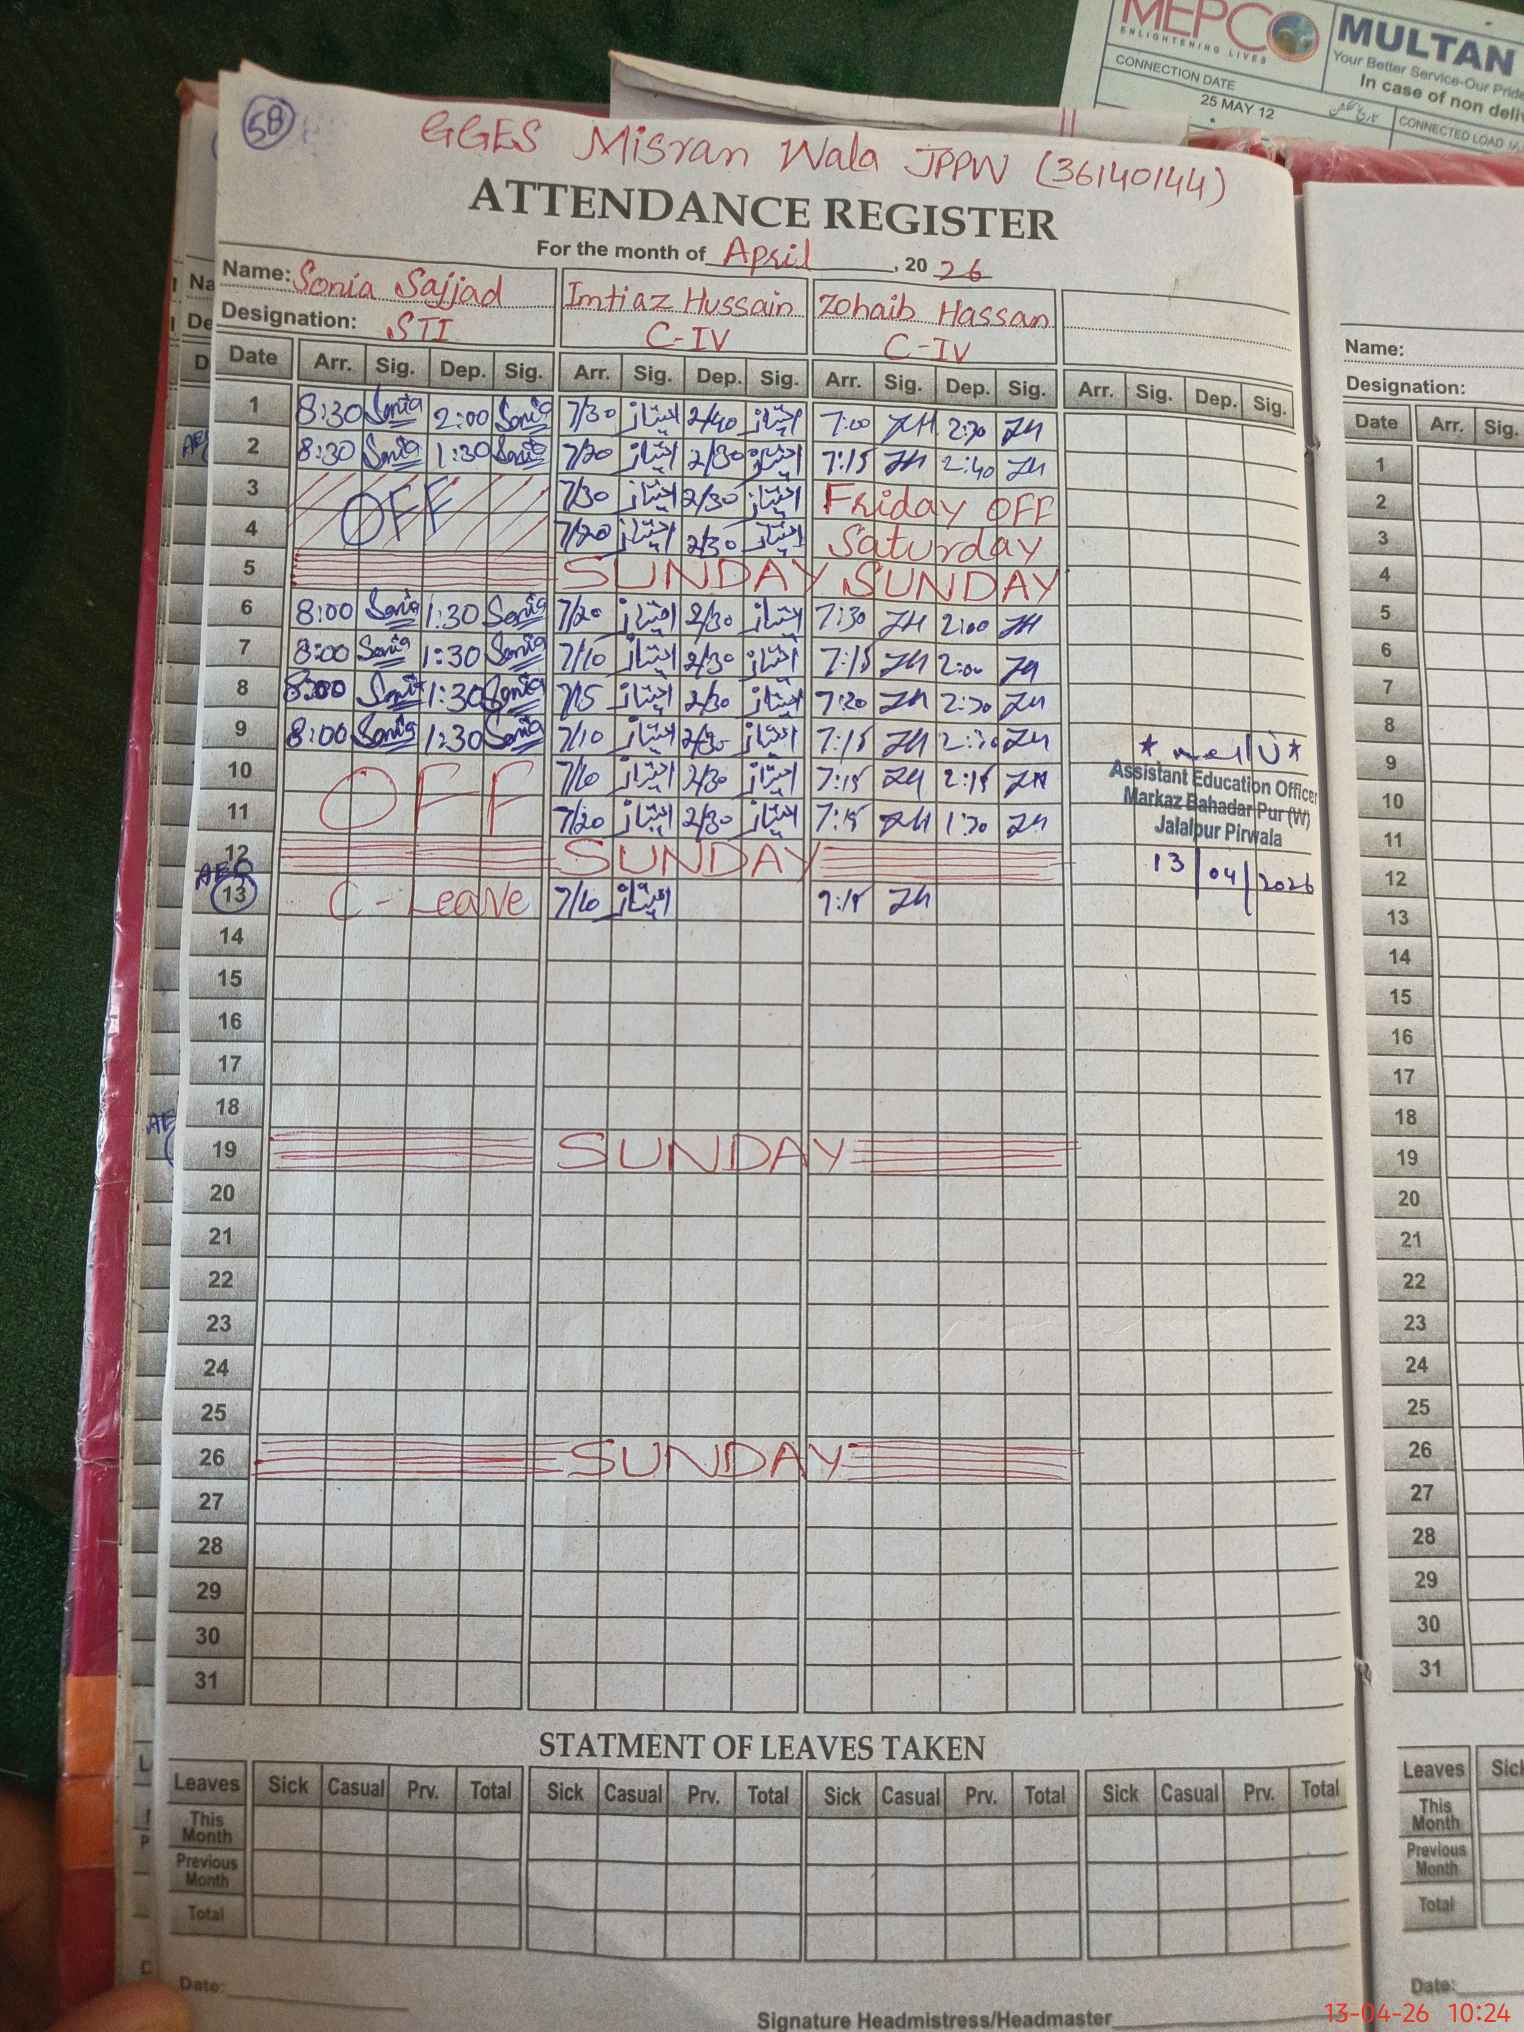 MEPCO
ENLIGHTENING LIVES
MULTAN
Your Better Service-Our Pride
In case of non deliv
CONNECTION DATE
25 MAY 12
CONNECTED LOAD
58
GGES Misran Wala JPPW (36140144)
ATTENDANCE REGISTER
For the month of April, 20 26
Name: Sonia Sajjad Imtiaz Hussain Zohaib Hassan
Designation: STI C-IV C-IV
Date Arr. Sig. Dep. Sig. Arr. Sig. Dep. Sig. Arr. Sig. Dep. Sig. Arr. Sig. Dep. Sig.
1 8:30 Sonia 2:00 Sonia 7/30 امتیاز 2/40 امتیاز 7:00 ZH 2:30 ZH
2 8:30 Sonia 1:30 Sonia 7/20 امتیاز 2/30 امتیاز 7:15 ZH 2:40 ZH
3 OFF 7/30 امتیاز 2/30 امتیاز Friday OFF
4 7/20 امتیاز 2/30 امتیاز Saturday
5 SUNDAY SUNDAY
6 8:00 Sonia 1:30 Sonia 7/20 امتیاز 2/30 امتیاز 7:30 ZH 2:00 ZH
7 8:00 Sonia 1:30 Sonia 7/10 امتیاز 2/30 امتیاز 7:15 ZH 2:00 ZH
8 8:00 Sonia 1:30 Sonia 7/15 امتیاز 2/30 امتیاز 7:20 ZH 2:30 ZH
9 8:00 Sonia 1:30 Sonia 7/10 امتیاز 2/30 امتیاز 7:15 ZH 2:30 ZH
10 OFF 7/10 امتیاز 2/30 امتیاز 7:15 ZH 2:15 ZH
11 7/20 امتیاز 2/30 امتیاز 7:15 ZH 1:30 ZH
12 SUNDAY
AEO
13 C-Leave 7/10 امتیاز ZH
Assistant Education Officer
Markaz Bahadar Pur (W)
Jalalpur Pirwala
13/04/2026
14
15
16
17
18
19 SUNDAY
20
21
22
23
24
25
26 SUNDAY
27
28
29
30
31
STATMENT OF LEAVES TAKEN
Leaves Sick Casual Prv. Total Sick Casual Prv. Total Sick Casual Prv. Total Sick Casual Prv. Total
This Month
Previous Month
Total
Date:
Signature Headmistress/Headmaster
Name:
Designation:
Date Arr. Sig.
1
2
3
4
5
6
7
8
9
10
11
12
13
14
15
16
17
18
19
20
21
22
23
24
25
26
27
28
29
30
31
Leaves Sick
This Month
Previous Month
Total
Date:
13-04-26 10:24